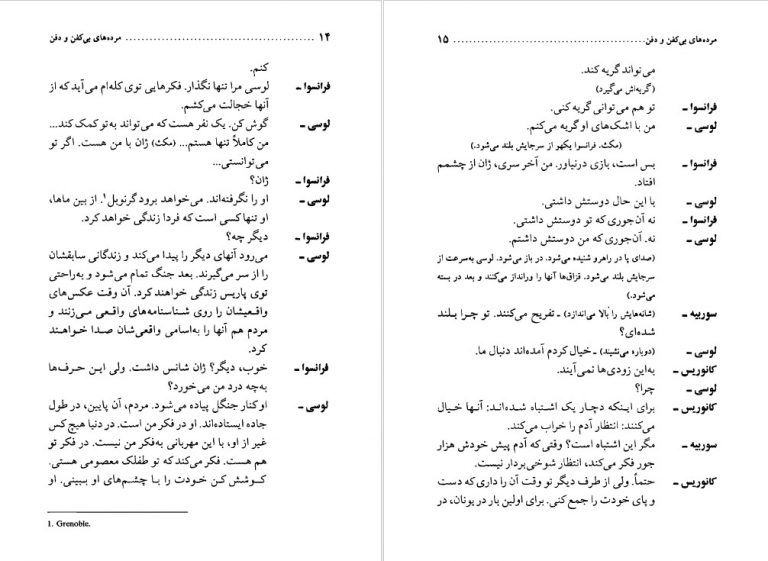 ۱۴ ............................................ مرده‌های بی‌کفن و دفن
کنم.
فرانسوا ـ لوسی مرا تنها نگذار. فکرهایی توی کله‌ام می‌آید که از
آنها خجالت می‌کشم.
لوسی ـ گوش کن. یک نفر هست که می‌تواند به‌تو کمک کند...
من کاملاً تنها هستم... (مکث) ژان با من هست. اگر تو
می‌توانستی...
فرانسوا ـ ژان؟
لوسی ـ او را نگرفته‌اند. می‌خواهد برود گرنوبل۱. از بین ماها،
او تنها کسی است که فردا زندگی خواهد کرد.
فرانسوا ـ دیگر چه؟
لوسی ـ می‌رود آنهای دیگر را پیدا می‌کند و زندگانی سابقشان
را از سر می‌گیرند. بعد جنگ تمام می‌شود و به‌راحتی
توی پاریس زندگی خواهند کرد. آن وقت عکس‌های
واقعیشان را روی شناسنامه‌های واقعی می‌زنند و
مردم هم آنها را به‌اسامی واقعی‌شان صدا خواهند
کرد.
فرانسوا ـ خوب، دیگر؟ ژان شانس داشت. ولی این حرف‌ها
به‌چه درد من می‌خورد؟
لوسی ـ او کنار جنگل پیاده می‌شود. مردم، آن پایین، در طول
جاده ایستاده‌اند. او در فکر من است. در دنیا هیچ کس
غیر از او، با این مهربانی به‌فکر من نیست. در فکر تو
هم هست. فکر می‌کند که تو طفلک معصومی هستی.
کوشش کن خودت را با چشم‌های او ببینی. او
1. Grenoble.
مرده‌های بی‌کفن و دفن ............................................ ۱۵
می‌تواند گریه کند.
(گریه‌اش می‌گیرد)
فرانسوا ـ تو هم می‌توانی گریه کنی.
لوسی ـ من با اشک‌های او گریه می‌کنم.
(مکث. فرانسوا یکهو از سرجایش بلند می‌شود.)
فرانسوا ـ بس است، بازی درنیاور. من آخر سری، ژان از چشمم
افتاد.
لوسی ـ با این حال دوستش داشتی.
فرانسوا ـ نه آن‌جوری که تو دوستش داشتی.
لوسی ـ نه. آن‌جوری که من دوستش داشتم.
(صدای پا در راهرو شنیده می‌شود. در باز می‌شود. لوسی به‌سرعت از
سرجایش بلند می‌شود. قزاق‌ها آنها را ورانداز می‌کنند و بعد در بسته
می‌شود.)
سوربیه ـ (شانه‌هایش را بالا می‌اندازد) ـ تفریح می‌کنند. تو چرا بلند
شده‌ای؟
لوسی ـ (دوباره می‌نشیند) ـ خیال کردم آمده‌اند دنبال ما.
کانوریس ـ به‌این زودی‌ها نمی‌آیند.
لوسی ـ چرا؟
کانوریس ـ برای اینکه دچار یک اشتباه شده‌اند: آنها خیال
می‌کنند: انتظار آدم را خراب می‌کند.
سوربیه ـ مگر این اشتباه است؟ وقتی‌که آدم پیش خودش هزار
جور فکر می‌کند، انتظار شوخی‌بردار نیست.
کانوریس ـ حتماً. ولی از طرف دیگر تو وقت آن را داری که دست
و پای خودت را جمع کنی. برای اولین بار در یونان، در